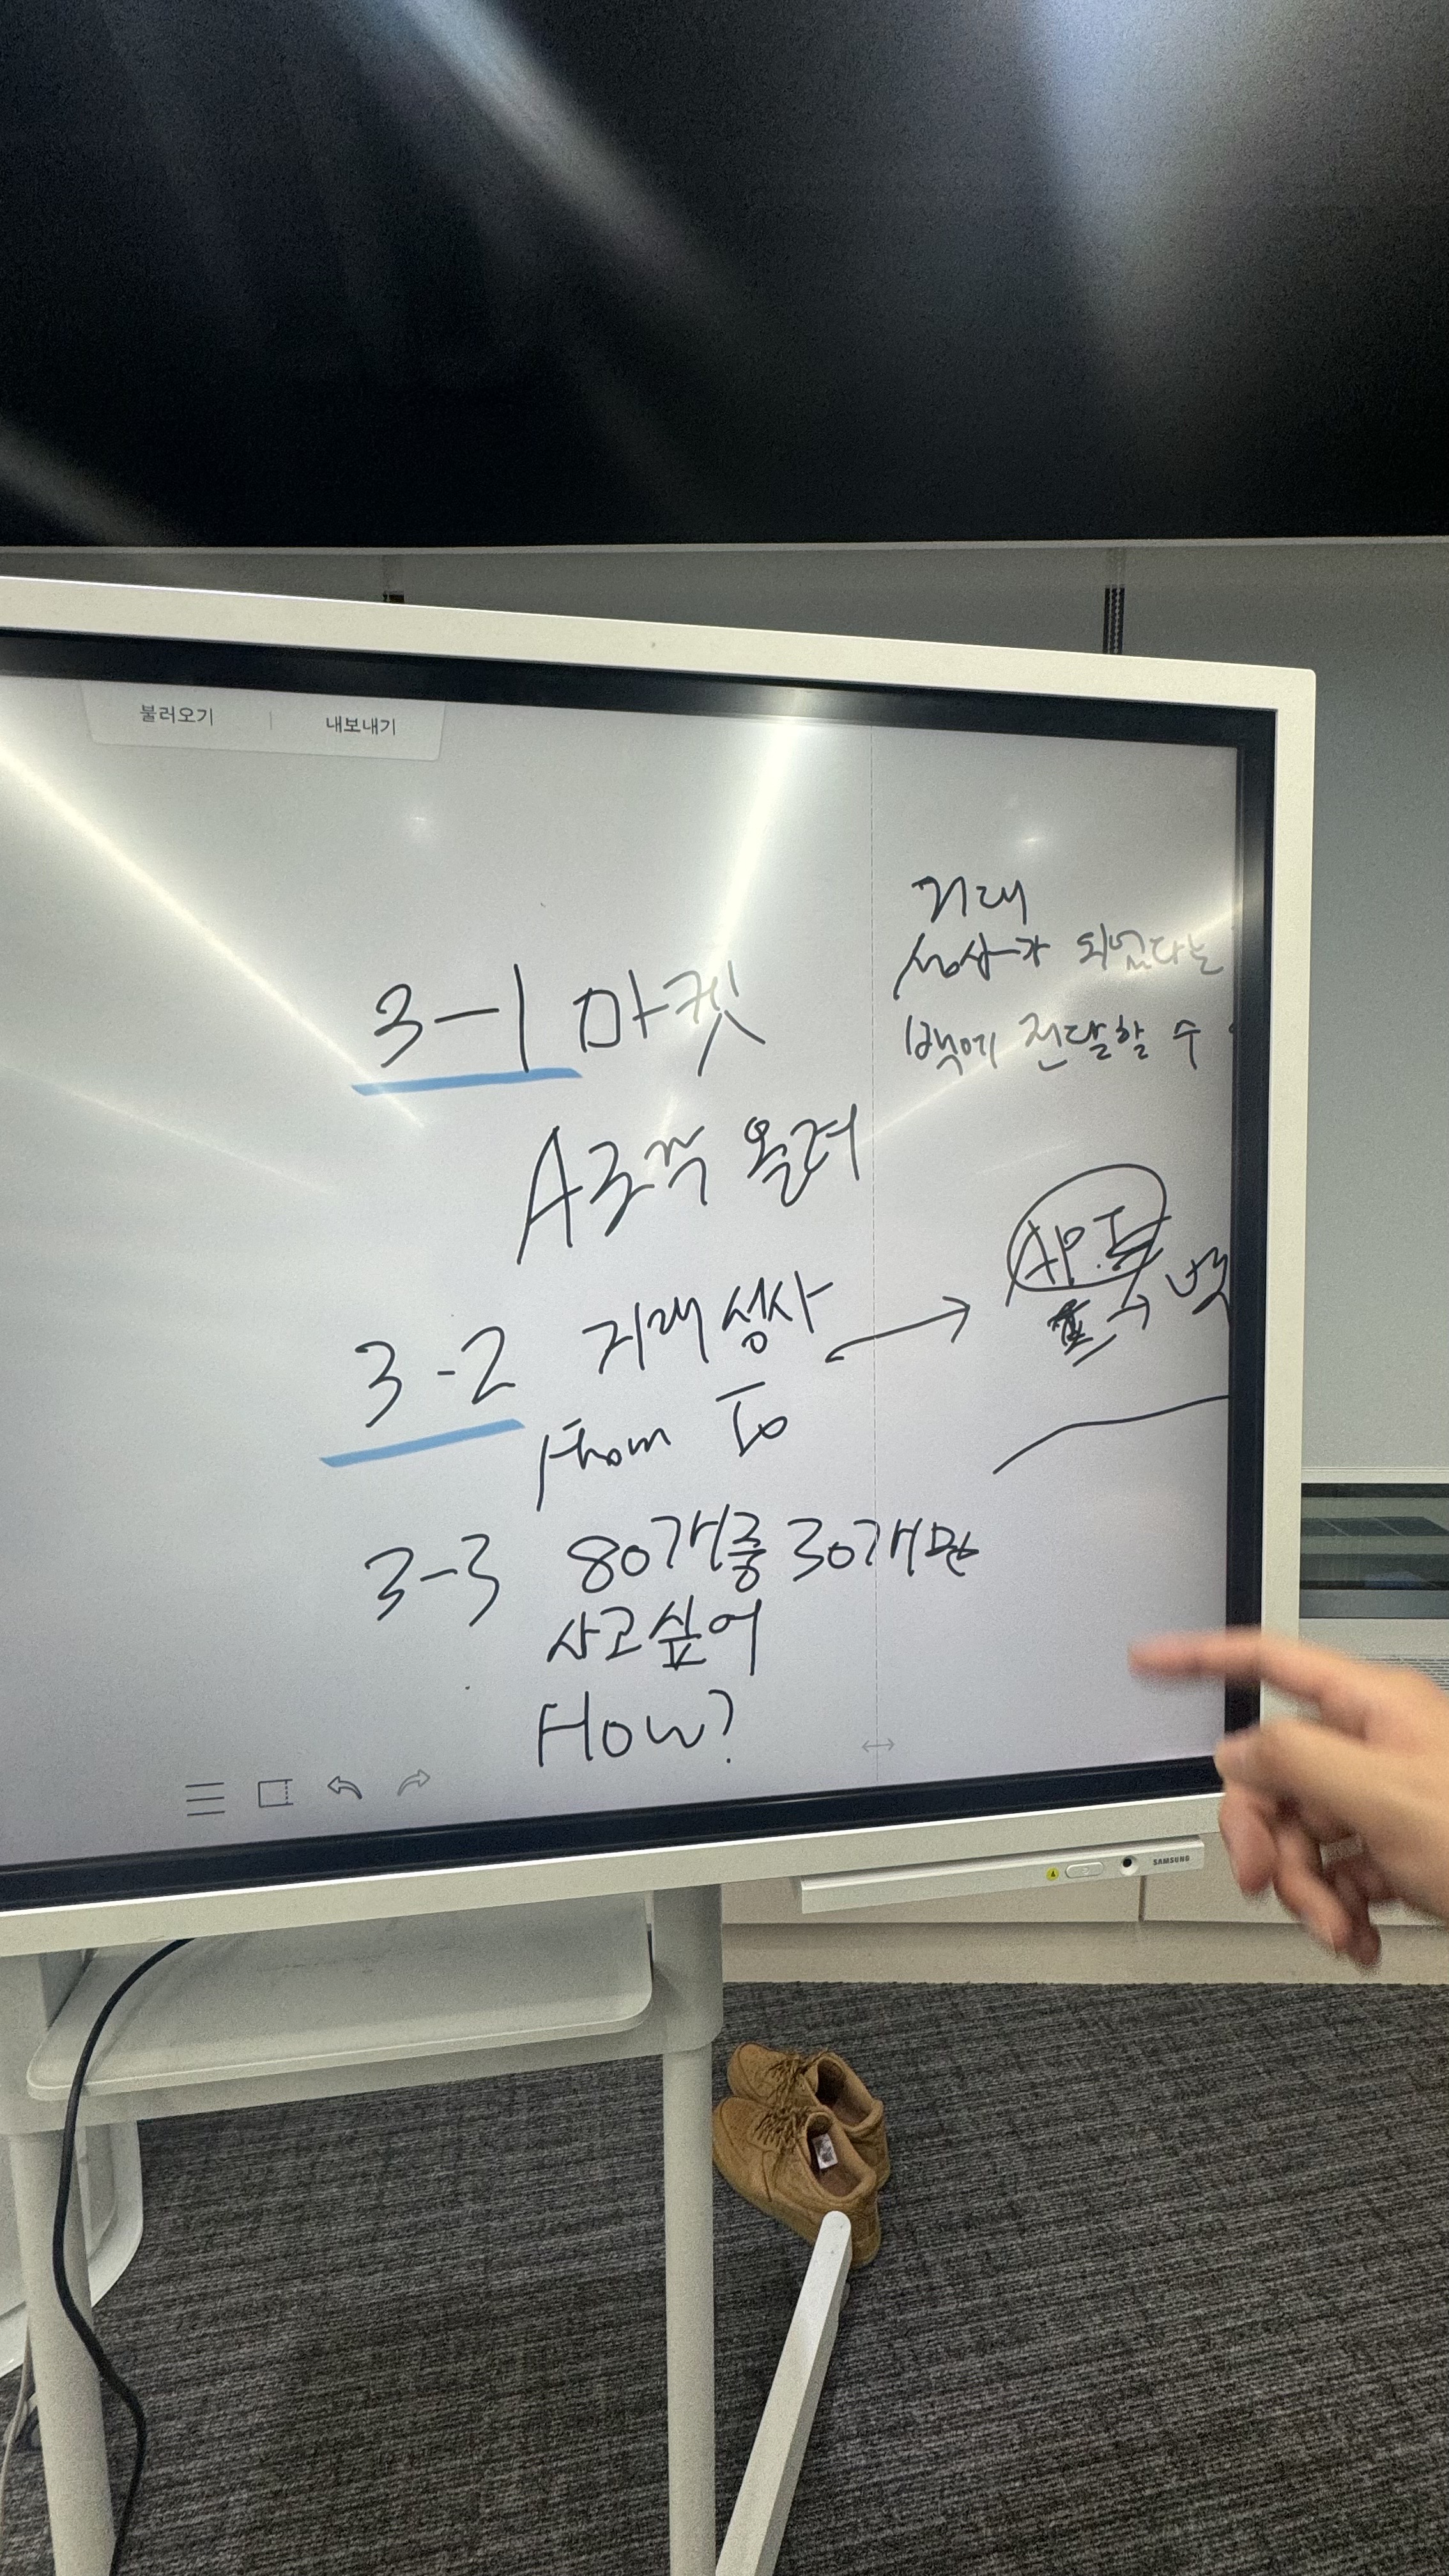 불러오기 | 내보내기
3-1 마켓
A조각 올려
3-2 거래 성사
From To
3-3 80개중 30개만
사고싶어
How?
거래
성사가 되었다는
백에 전달할 수
API
SAMSUNG